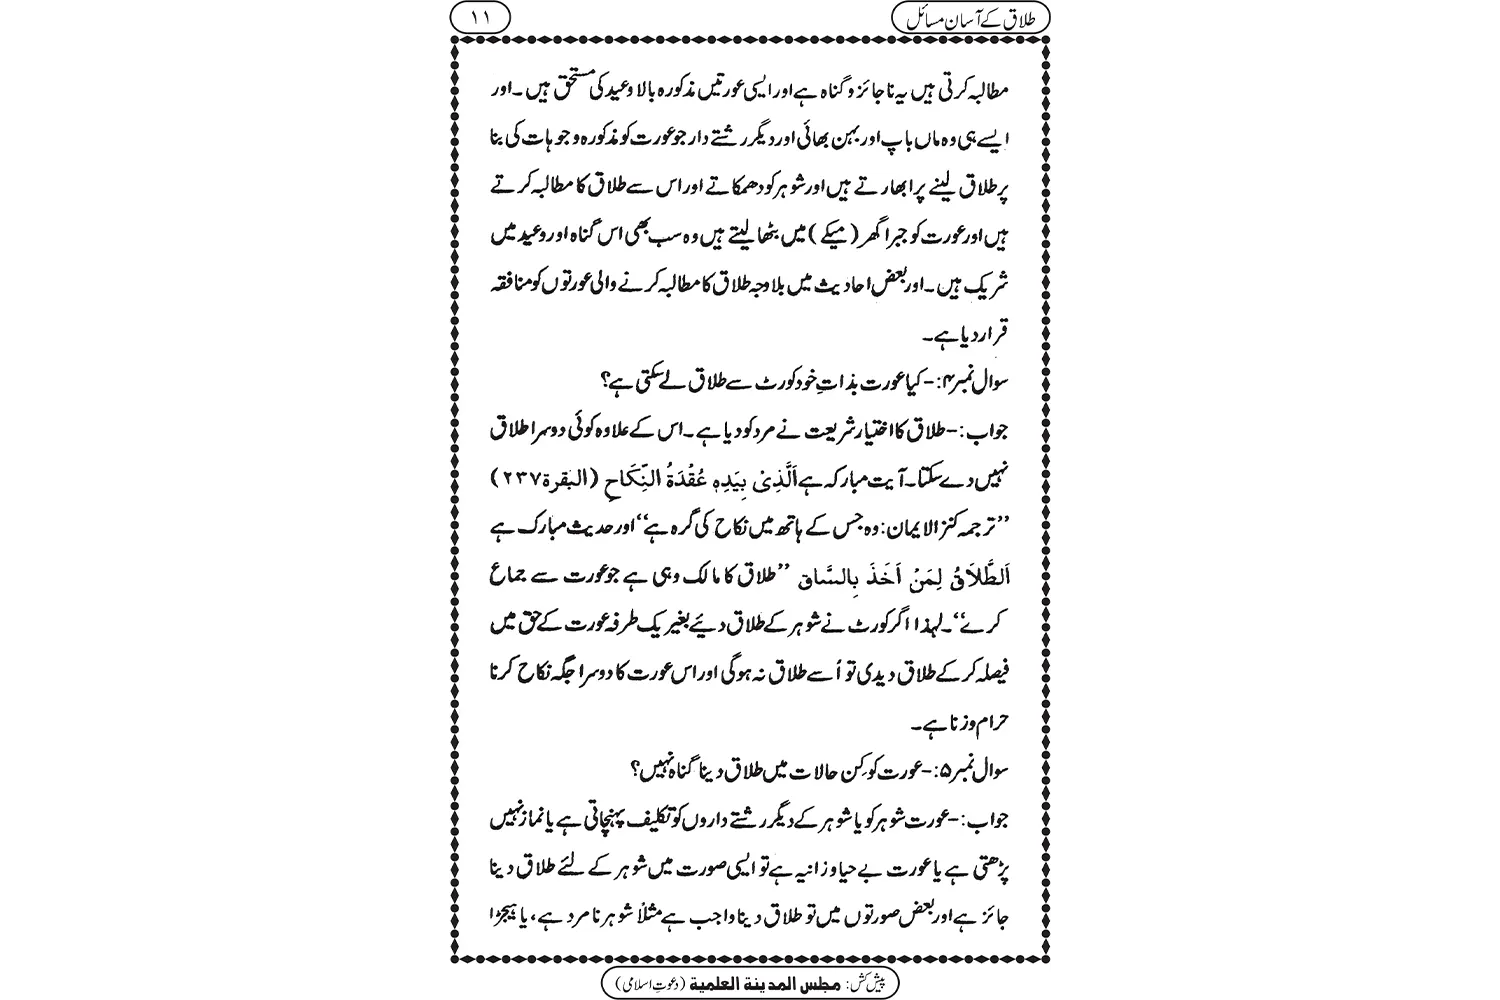 طلاق کے آسان مسائل
۱۱
مطالبہ کرتی ہیں یہ ناجائز و گناہ ہے اور ایسی عورتیں مذکورہ بالا وعید کی مستحق ہیں۔ اور
ایسے ہی وہ ماں باپ اور بہن بھائی اور دیگر رشتے دار جو عورت کو مذکورہ وجوہات کی بنا
پر طلاق لینے پر ابھارتے ہیں اور شوہر کو دھمکاتے اور اس سے طلاق کا مطالبہ کرتے
ہیں اور عورت کو جبراً گھر (میکے) میں بٹھا لیتے ہیں وہ سب بھی اس گناہ اور وعید میں
شریک ہیں۔ اور بعض احادیث میں بلاوجہ طلاق کا مطالبہ کرنے والی عورتوں کو منافقہ
قرار دیا ہے۔
سوال نمبر ۴:- کیا عورت بذاتِ خود کورٹ سے طلاق لے سکتی ہے؟
جواب:- طلاق کا اختیار شریعت نے مرد کو دیا ہے۔ اس کے علاوہ کوئی دوسرا طلاق
نہیں دے سکتا۔ آیت مبارکہ ہے اَلَّذِیْ بِیَدِهٖ عُقْدَةُ النِّکَاحِ (البقرة ۲۳۷)
’’ترجمہ کنز الایمان: وہ جس کے ہاتھ میں نکاح کی گرہ ہے‘‘ اور حدیث مبارک ہے
اَلطَّلَاقُ لِمَنْ اَخَذَ بِالسَّاق ’’طلاق کا مالک وہی ہے جو عورت سے جماع
کرے‘‘۔ لہذا اگر کورٹ نے شوہر کے طلاق دیئے بغیر یک طرفہ عورت کے حق میں
فیصلہ کر کے طلاق دیدی تو اُسے طلاق نہ ہوگی اور اس عورت کا دوسرا جگہ نکاح کرنا
حرام و زنا ہے۔
سوال نمبر ۵:- عورت کو کِن حالات میں طلاق دینا گناہ نہیں؟
جواب:- عورت شوہر کو یا شوہر کے دیگر رشتے داروں کو تکلیف پہنچاتی ہے یا نماز نہیں
پڑھتی ہے یا عورت بے حیا و زانیہ ہے تو ایسی صورت میں شوہر کے لئے طلاق دینا
جائز ہے اور بعض صورتوں میں تو طلاق دینا واجب ہے مثلاً شوہر نامرد ہے، یا ہیجڑا
پیش کش: مجلس المدینۃ العلمیۃ (دعوتِ اسلامی)